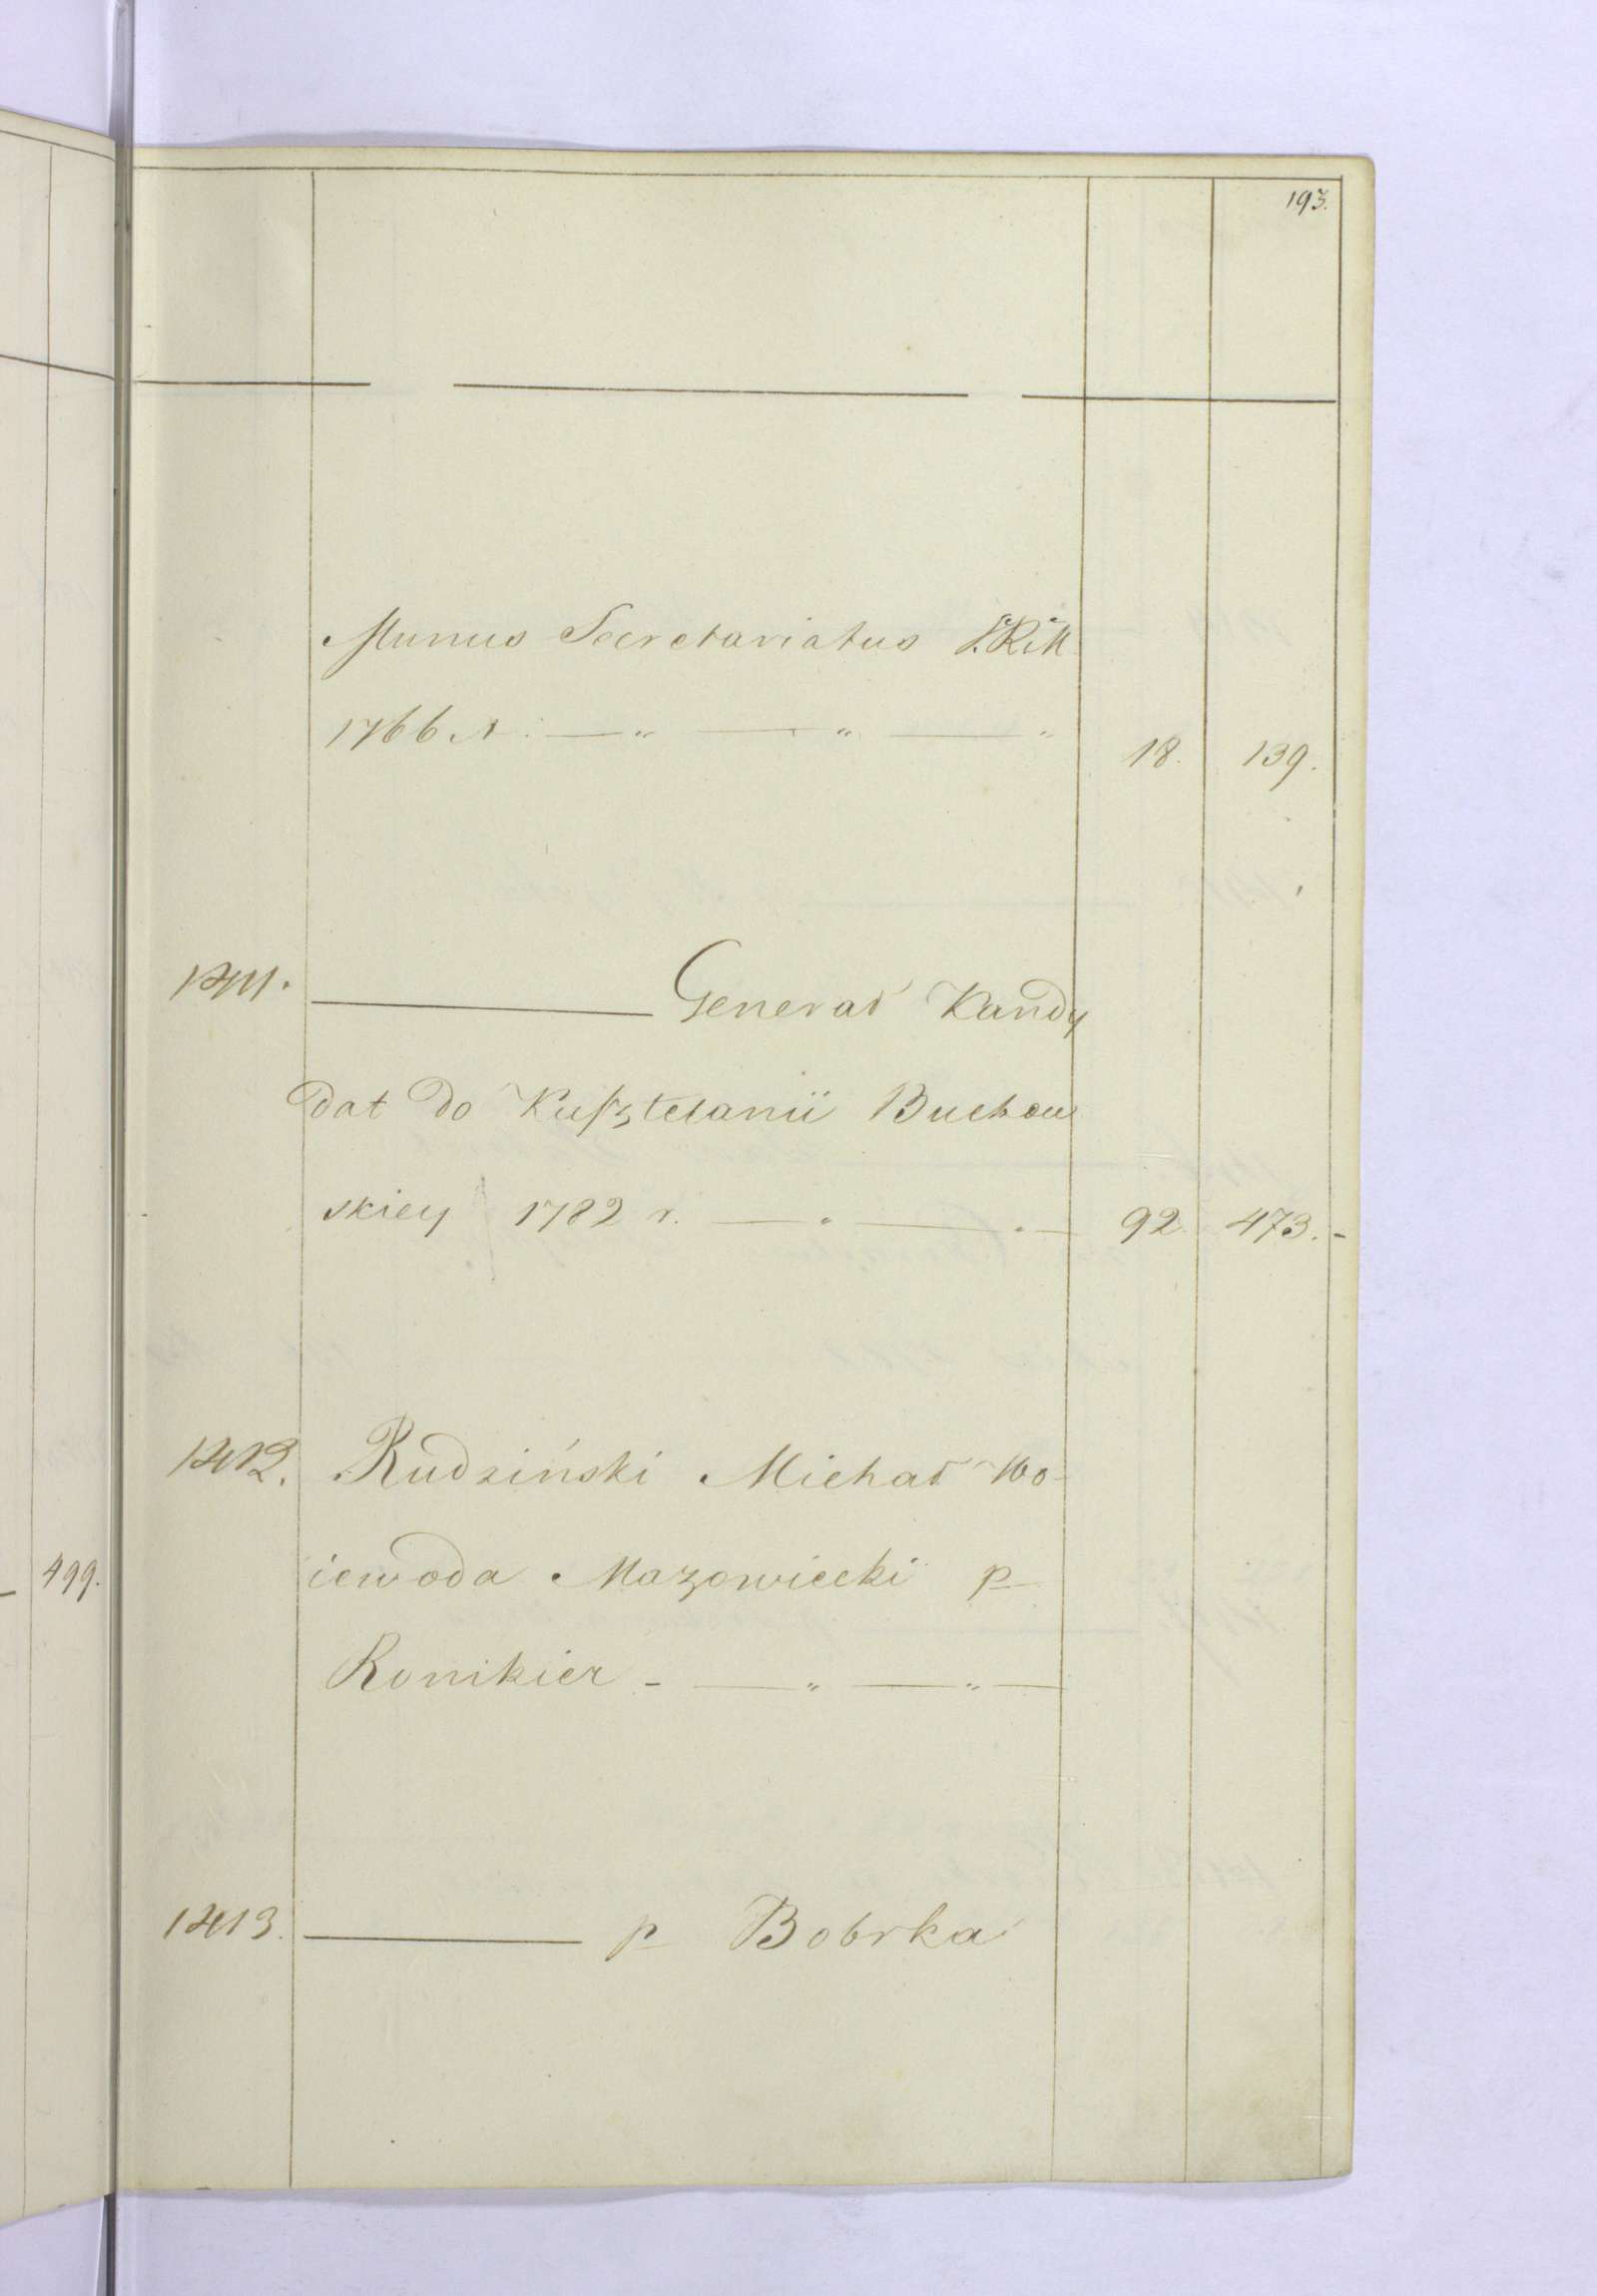 193.
Munus Secretariatus S.R.M.
1766 r. — „ — „ — „ 18. 139.
1411. ——— Generał Kandy
dat do Kasztelanii Buchow
skiey 1782 r. — „ — „ — 92 473. -
1412. Rudziński Michał Wo-
iewoda Mazowiecki p
499.
Ronikier - — „ — „ —
1413. ——— p Bobrka